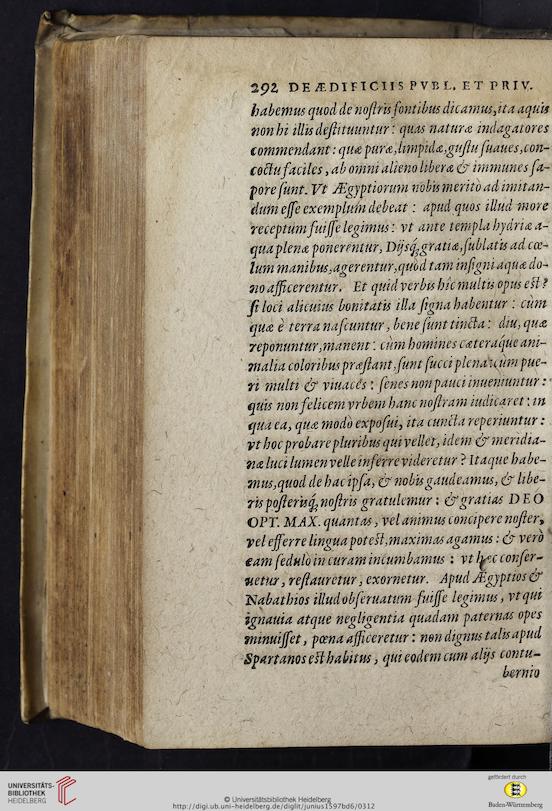 292 DE ÆDIFICIIS PVBL. ET PRIV.
habemus quod de noſtris fontibus dicamus, ita aquis
non hi illis deſtituuntur: quas naturæ indagatores
commendant: quæ puræ, limpidæ, guſtu ſuaues, con-
coctu faciles, ab omni alieno liberæ & immunes ſa-
pore ſunt. Vt Ægyptiorum nobis meritò ad imitan-
dum eſſe exemplum debeat: apud quos illud more
receptum fuiſſe legimus: vt ante templa hydriæ a-
qua plenæ ponerentur, Dijsq́; gratiæ, ſublatis ad cœ-
lum manibus, agerentur, quòd tam inſigni aquæ do-
no afficerentur. Et quid verbis hîc multis opus eſt?
ſi loci alicuius bonitatis illa ſigna habentur: cùm
quæ è terra naſcuntur, bene ſunt tincta: diu, quæ
reponuntur, manent: cùm homines cæteraque ani-
malia coloribus præſtant, ſunt ſucci plena: cùm pue-
ri multi & viuaces: ſenes non pauci inueniuntur:
quis non felicem vrbem hanc noſtram iudicaret: in
qua ea, quæ modò expoſui, ita cuncta reperiuntur:
vt hoc probare pluribus qui vellet, idem & meridia-
næ luci lumen velle inferre videretur? Itaque habe-
mus, quod de hac ipſa, & nobis gaudeamus, & libe-
ris poſterisq́; noſtris gratulemur: & gratias DEO
OPT. MAX. quantas, vel animus concipere noſter,
vel efferre lingua poteſt, maximas agamus: & verò
eam ſedulò in curam incumbamus: vt hæc conſer-
uetur, reſtauretur, exornetur. Apud Ægyptios &
Nabathios illud obſeruatum fuiſſe legimus, vt qui
ignauia atque negligentia quadam paternas opes
minuiſſet, pœna afficeretur: non dignus talis apud
Spartanos eſt habitus, qui eodem cum alijs contu-
bernio
UNIVERSITÄTS-
BIBLIOTHEK
HEIDELBERG
© Universitätsbibliothek Heidelberg
http://digi.ub.uni-heidelberg.de/diglit/junius1597bd6/0312
gefördert durch
Baden-Württemberg